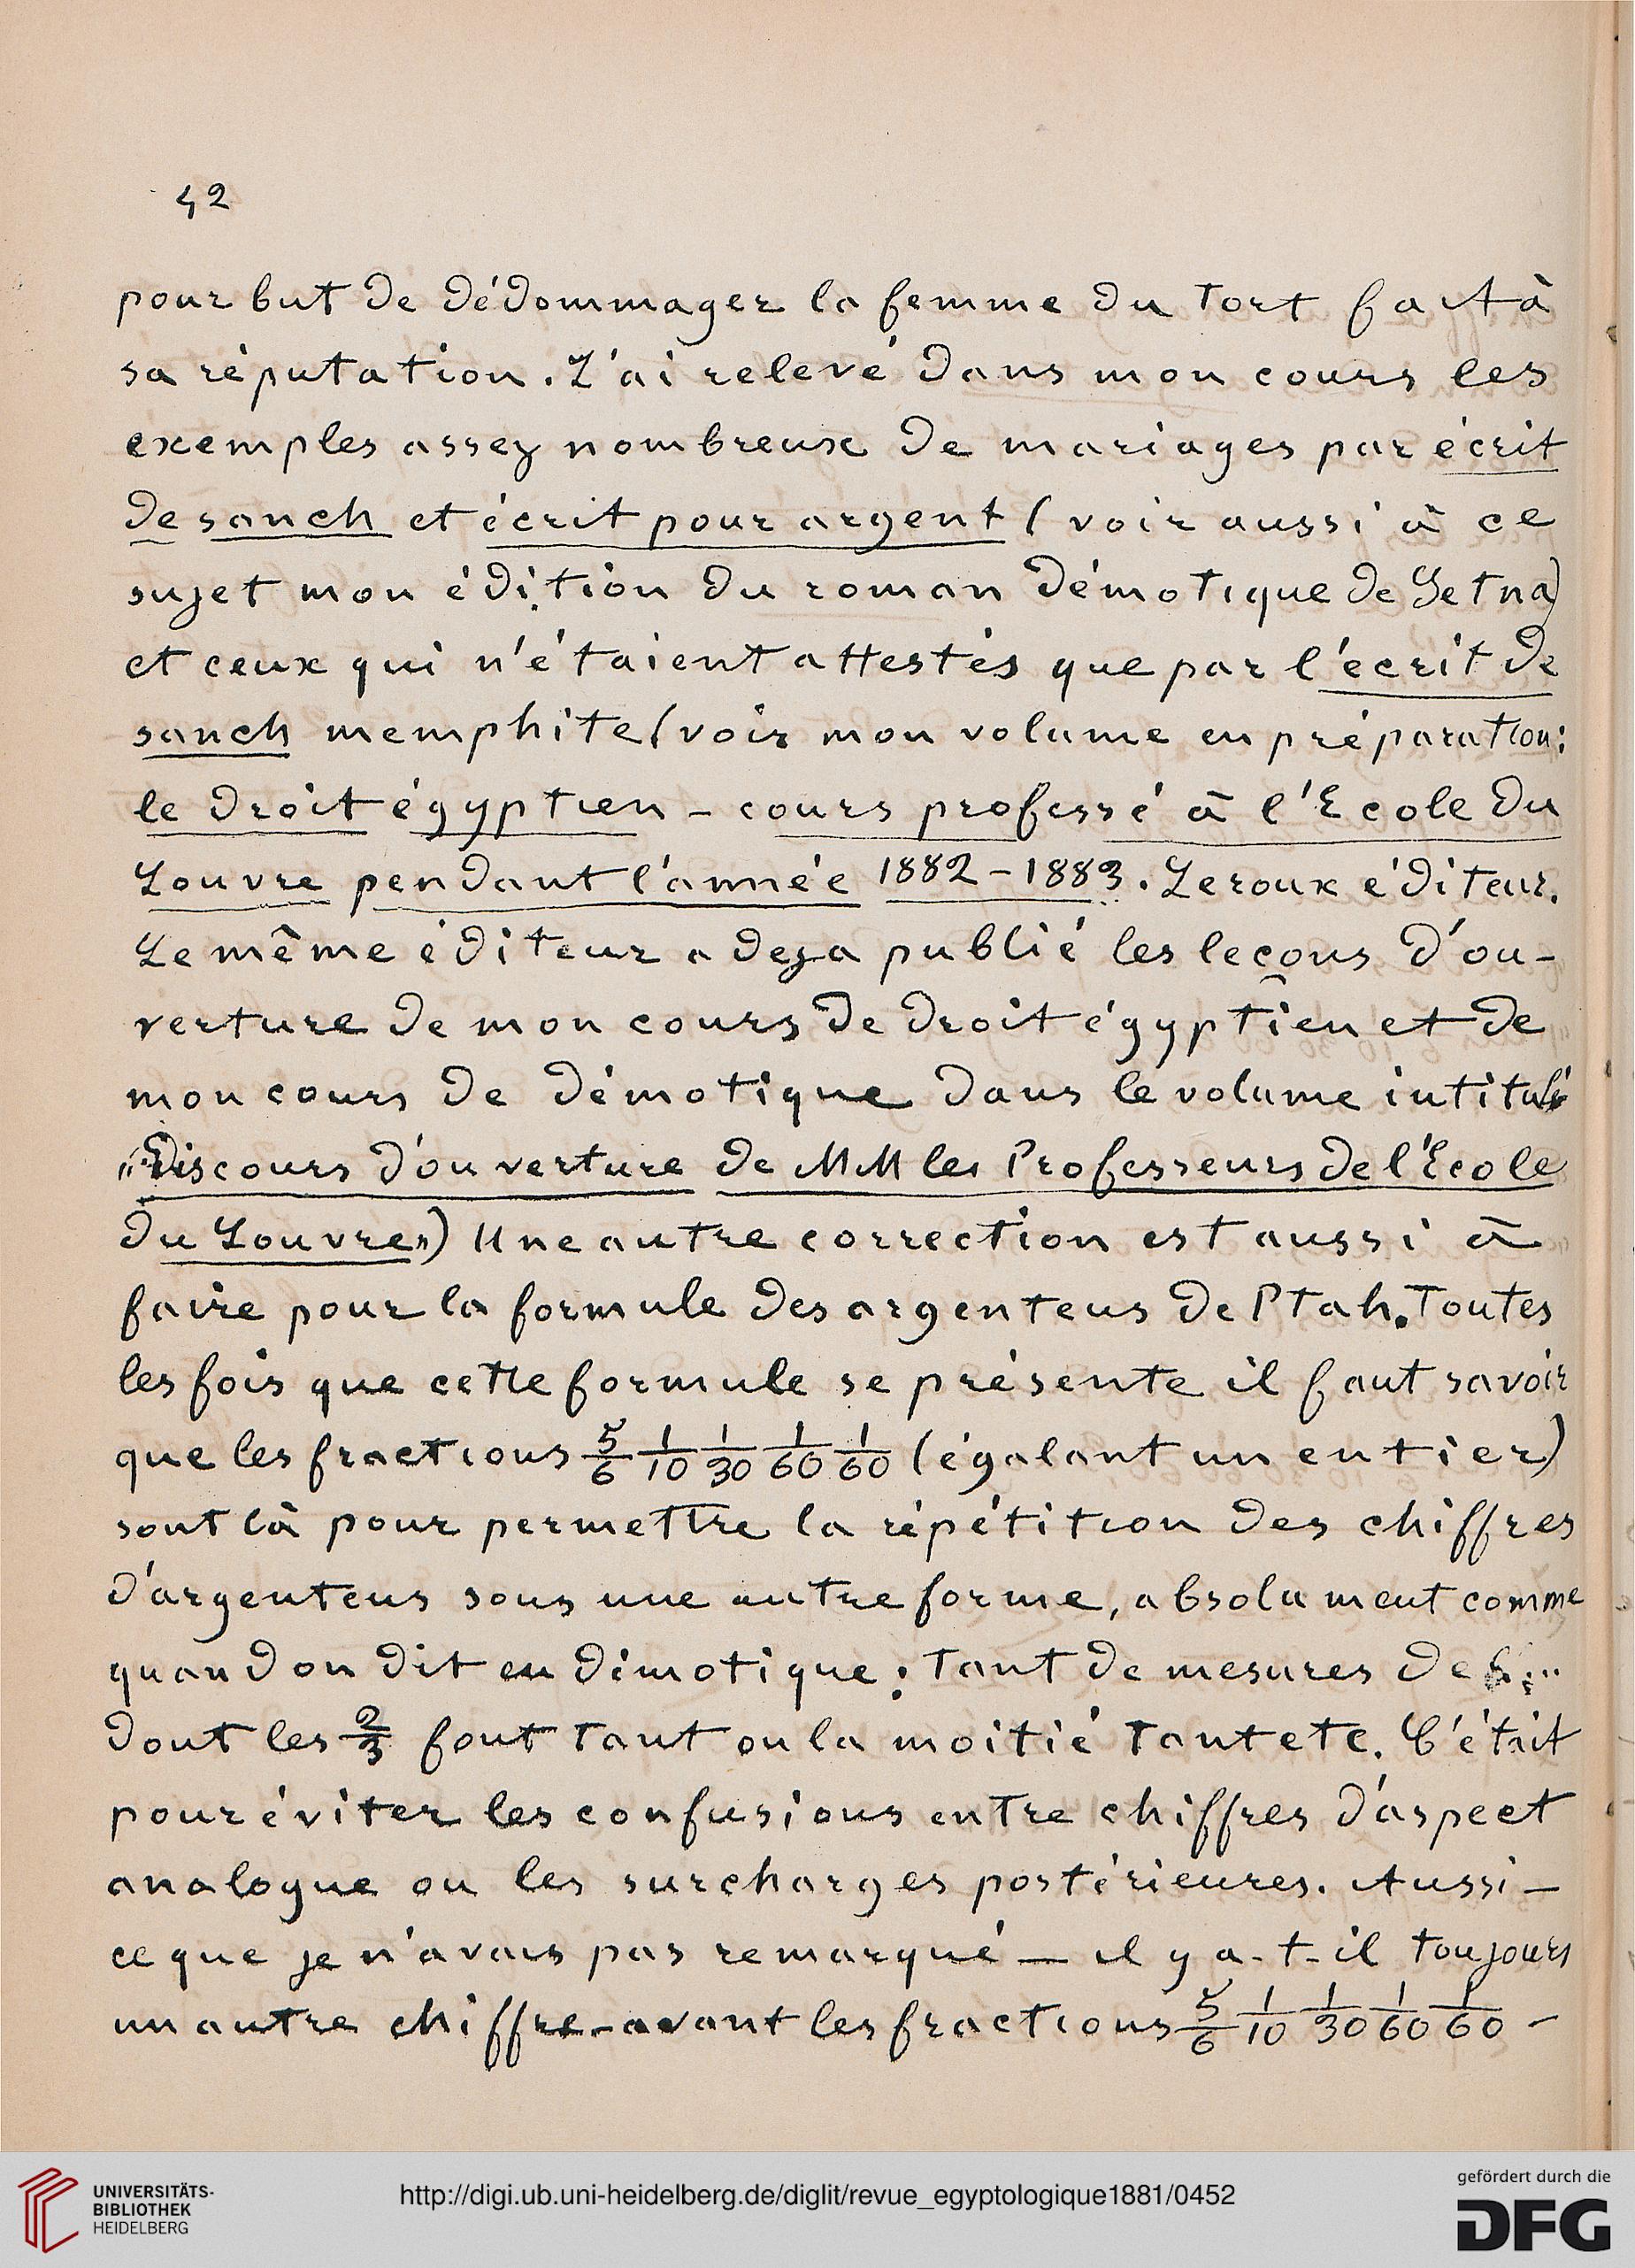 42
pour but de dédommager la femme du tort fait à
sa réputation. J'ai relevé dans mon cours les
exemples assez nombreux de mariages par écrit
de sanch et écrit pour argent (voir aussi à ce
sujet mon édition du roman démotique de Setna)
et ceux qui n'étaient attestés que par l'écrit de
sanch memphite (voir mon volume en préparation:
le Droit égyptien - cours professé à l'Ecole du
Louvre pendant l'année 1882-1883. Leroux éditeur.
Le même éditeur a deja publié les leçons d'ou-
verture de mon cours de droit égyptien et de
mon cours de démotique dans le volume intitulé
"Discours d'ouverture de MM les Professeurs de l'Ecole
du Louvre") Une autre correction est aussi à
faire pour la formule des argenteus de Ptah. Toutes
les fois que cette formule se présente il faut savoir
que les fractions 5/6 1/10 1/30 1/60 1/60 (égalant un entier)
sont là pour permettre la répétition des chiffres
d'argenteus sous une autre forme, absolument comme
quand on dit en démotique: tant de mesures de
dont les 2/3 font tant ou la moitié tant etc. C'était
pour éviter les confusions entre chiffres d'aspect
analogue ou les surcharges postérieures. Aussi —
ce que je n'avais pas remarqué — il y a-t-il toujours
un autre chiffre avant les fractions 5/6 1/10 1/30 1/60 1/60 -
UNIVERSITÄTS-
BIBLIOTHEK
HEIDELBERG
http://digi.ub.uni-heidelberg.de/diglit/revue_egyptologique1881/0452
gefördert durch die
DFG